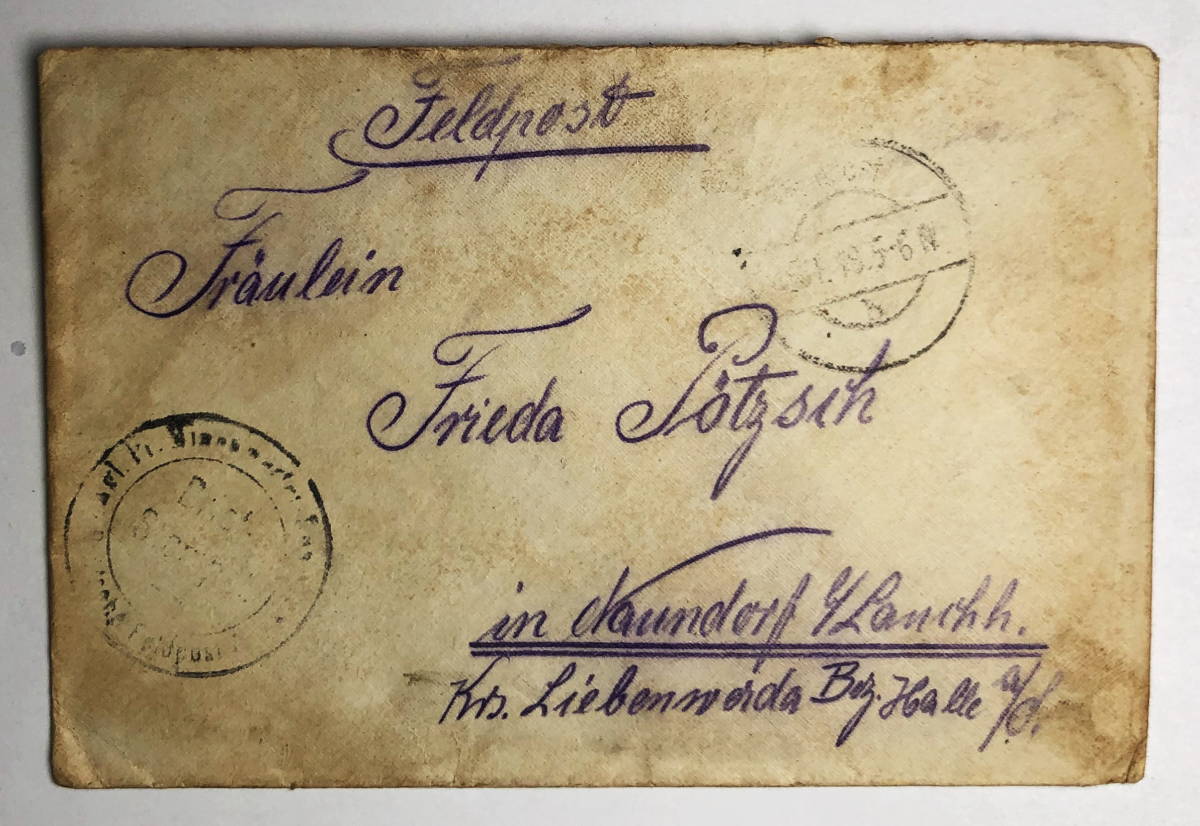 Feldpost
Fräulein
Frieda Pötzsch
in Naundorf b/Lauchh.
Krs. Liebenwerda Bez. Halle a/S.
5-6 N
Kgl. Pr.
Feldpost